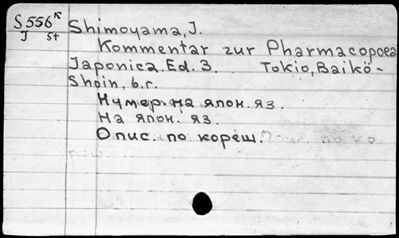 S 556 к
J st
Shimoyama, J.
Kommentar zur Pharmacopoea
Japonica. Ed. 3. Tokio, Baikō-
Shoin, б.г.
Нумер. на япон. яз.
На япон. яз.
Опис. по кореш.